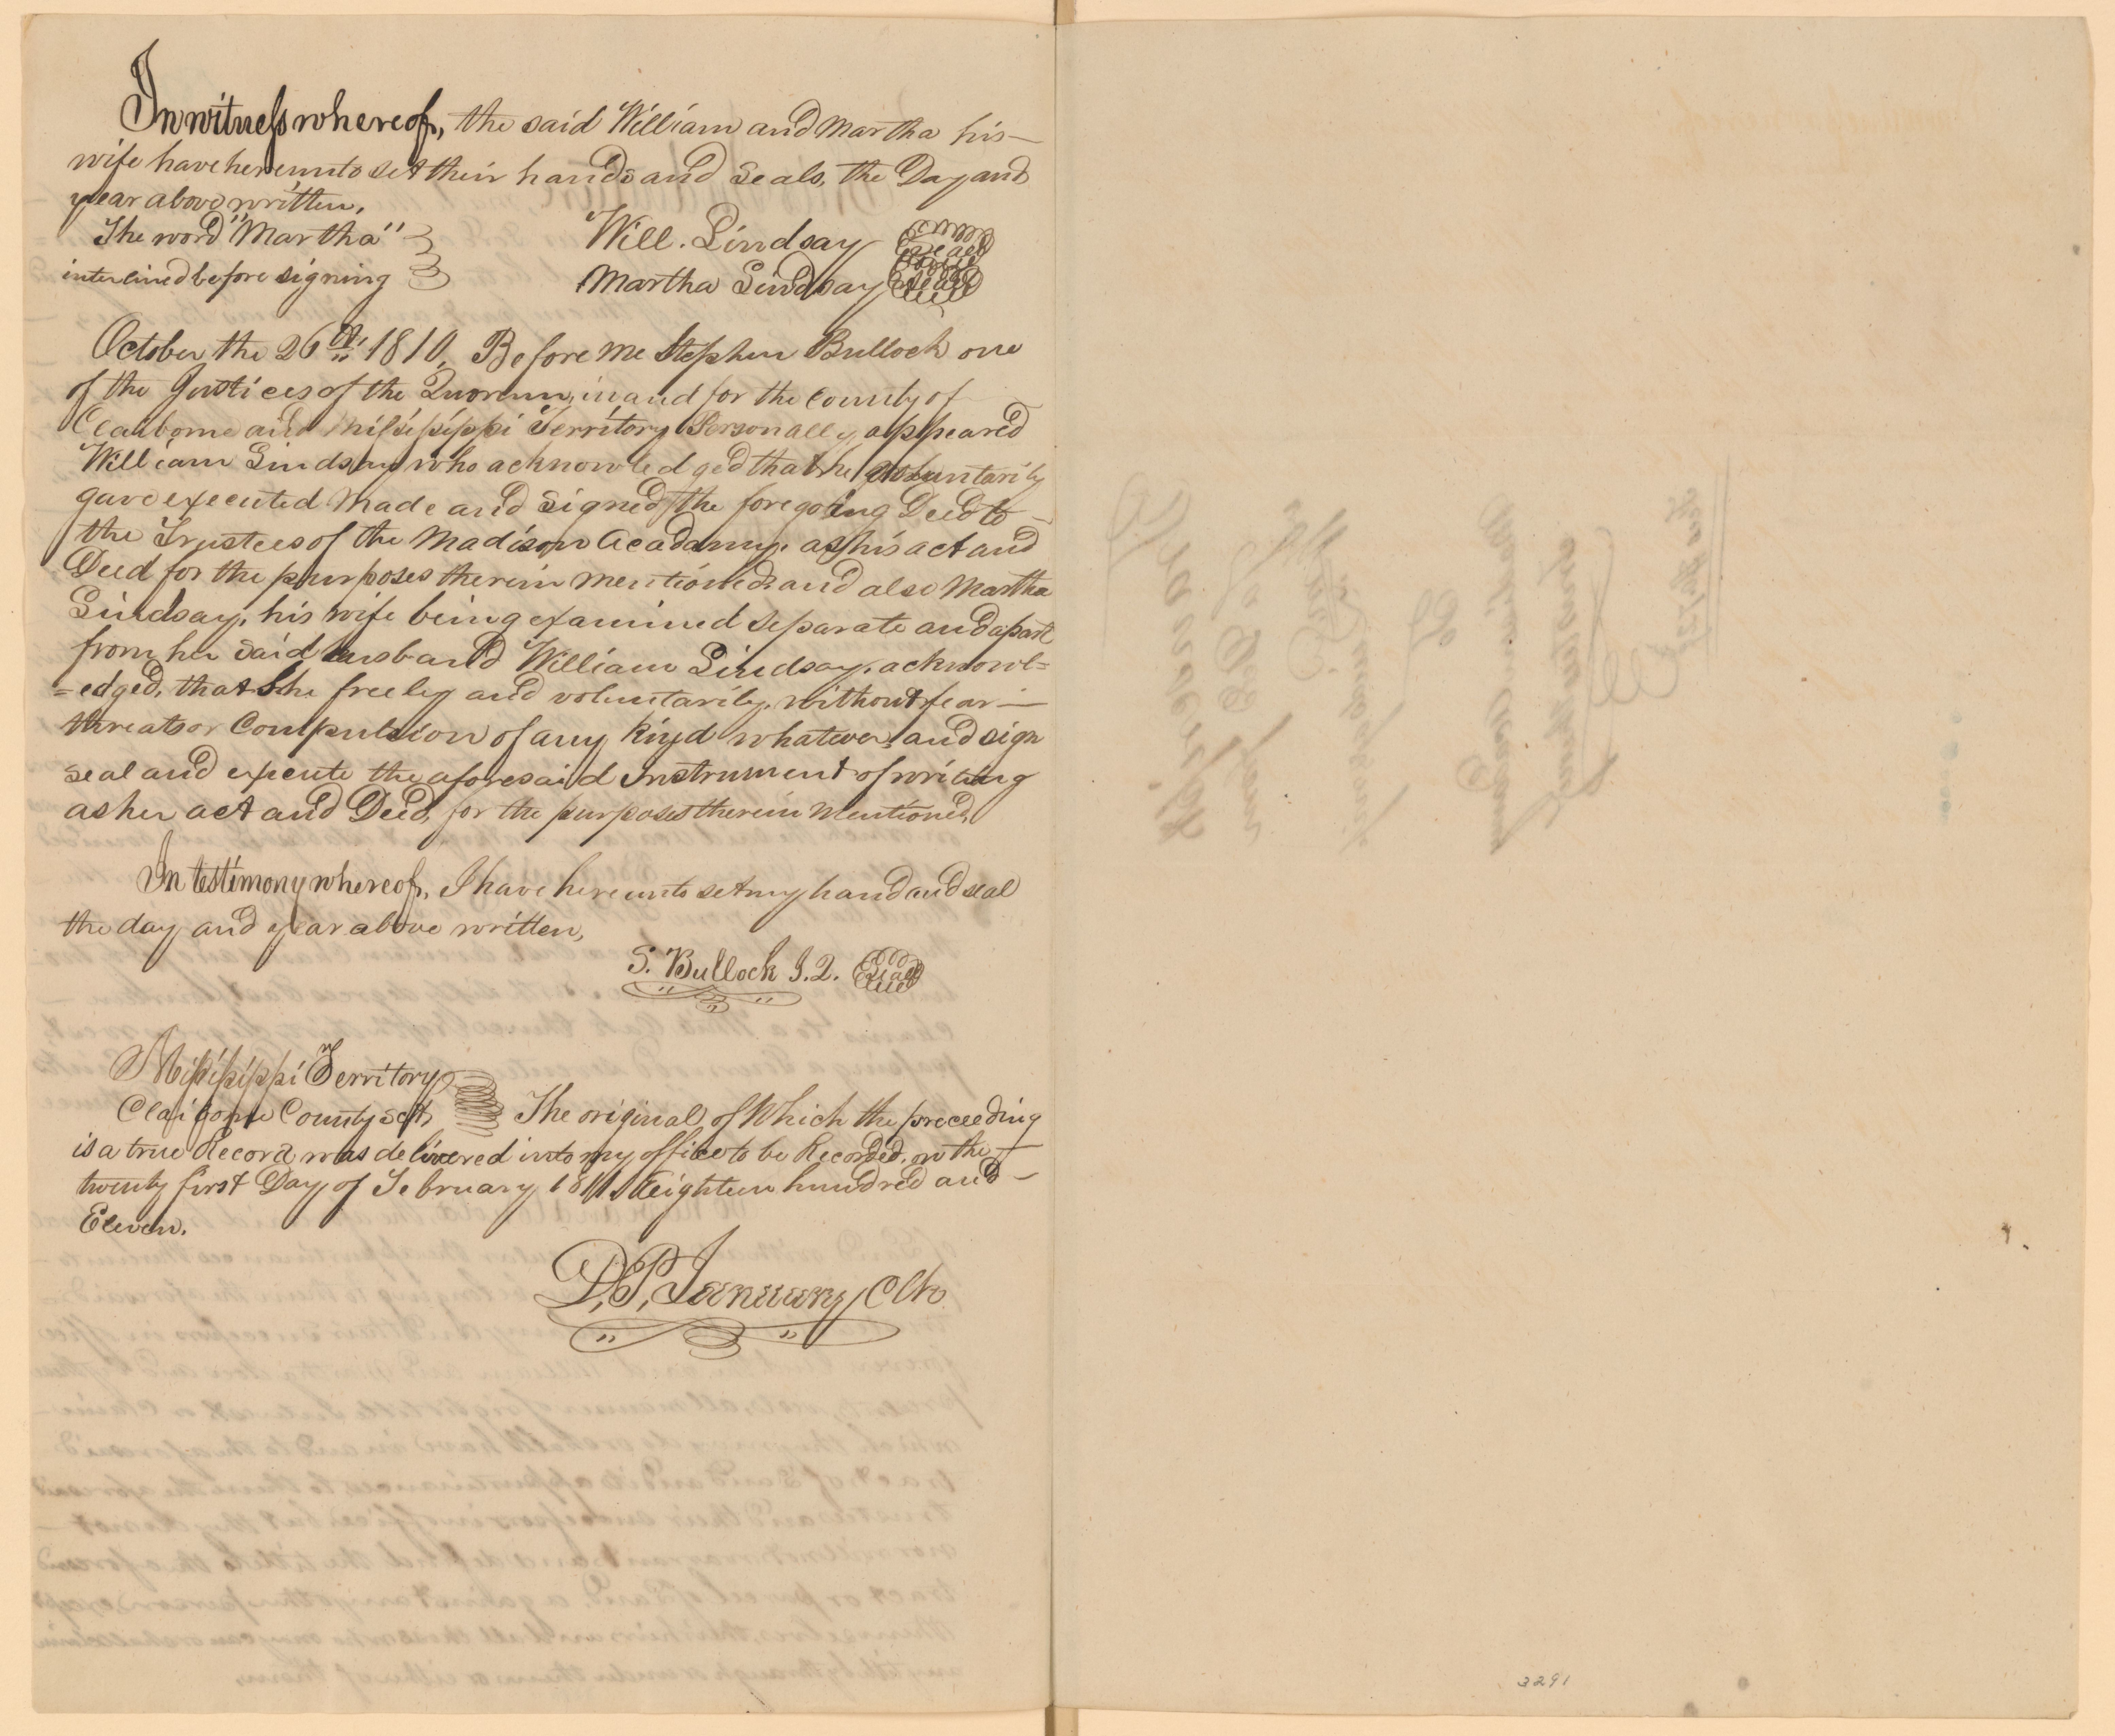 In witness whereof, the said William and Martha his
wife have hereunto set their hands and seals, the Day and
year above written.
The word "Martha"
interlined before signing
Will. Lindsay Seal
Martha Lindsay Seal
October the 26th, 1810. Before me Stephen Bullock one
of the Justices of the Quorum, in and for the county of
Claiborne and Mississippi Territory Personally, appeared
William Lindsay who acknowledged that he voluntarily
gave executed made and signed the foregoing Deed to
the Trustees of the Madison Academy, as his act and
Deed for the purposes therein mentioned and also Martha
Lindsay, his wife being examined separate and apart
from her said husband William Lindsay, acknowl=
=edged, that she freely and voluntarily, without fear
threats or Compulsion of any kind whatever, and sign
seal and execute the aforesaid Instrument of writing
as her act and Deed, for the purposes therein mentioned.
In testimony whereof, I have hereunto set my hand and seal
the day and year above written,
S. Bullock J.Q. Seal
Mississippi Territory
Claiborne County sct, The original of Which the preceeding
is a true Record, was delivered into my office to be Recorded, on the
twenty first Day of February 1811, Eighteen hundred and
Eleven.
D.P. January Clk
3291